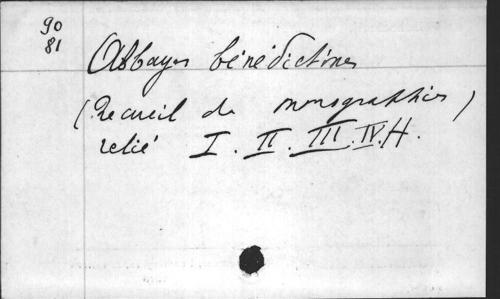 90
81
Abbayes bénédictines
(Recueil de monographies)
relié I. II. III. IV. H.